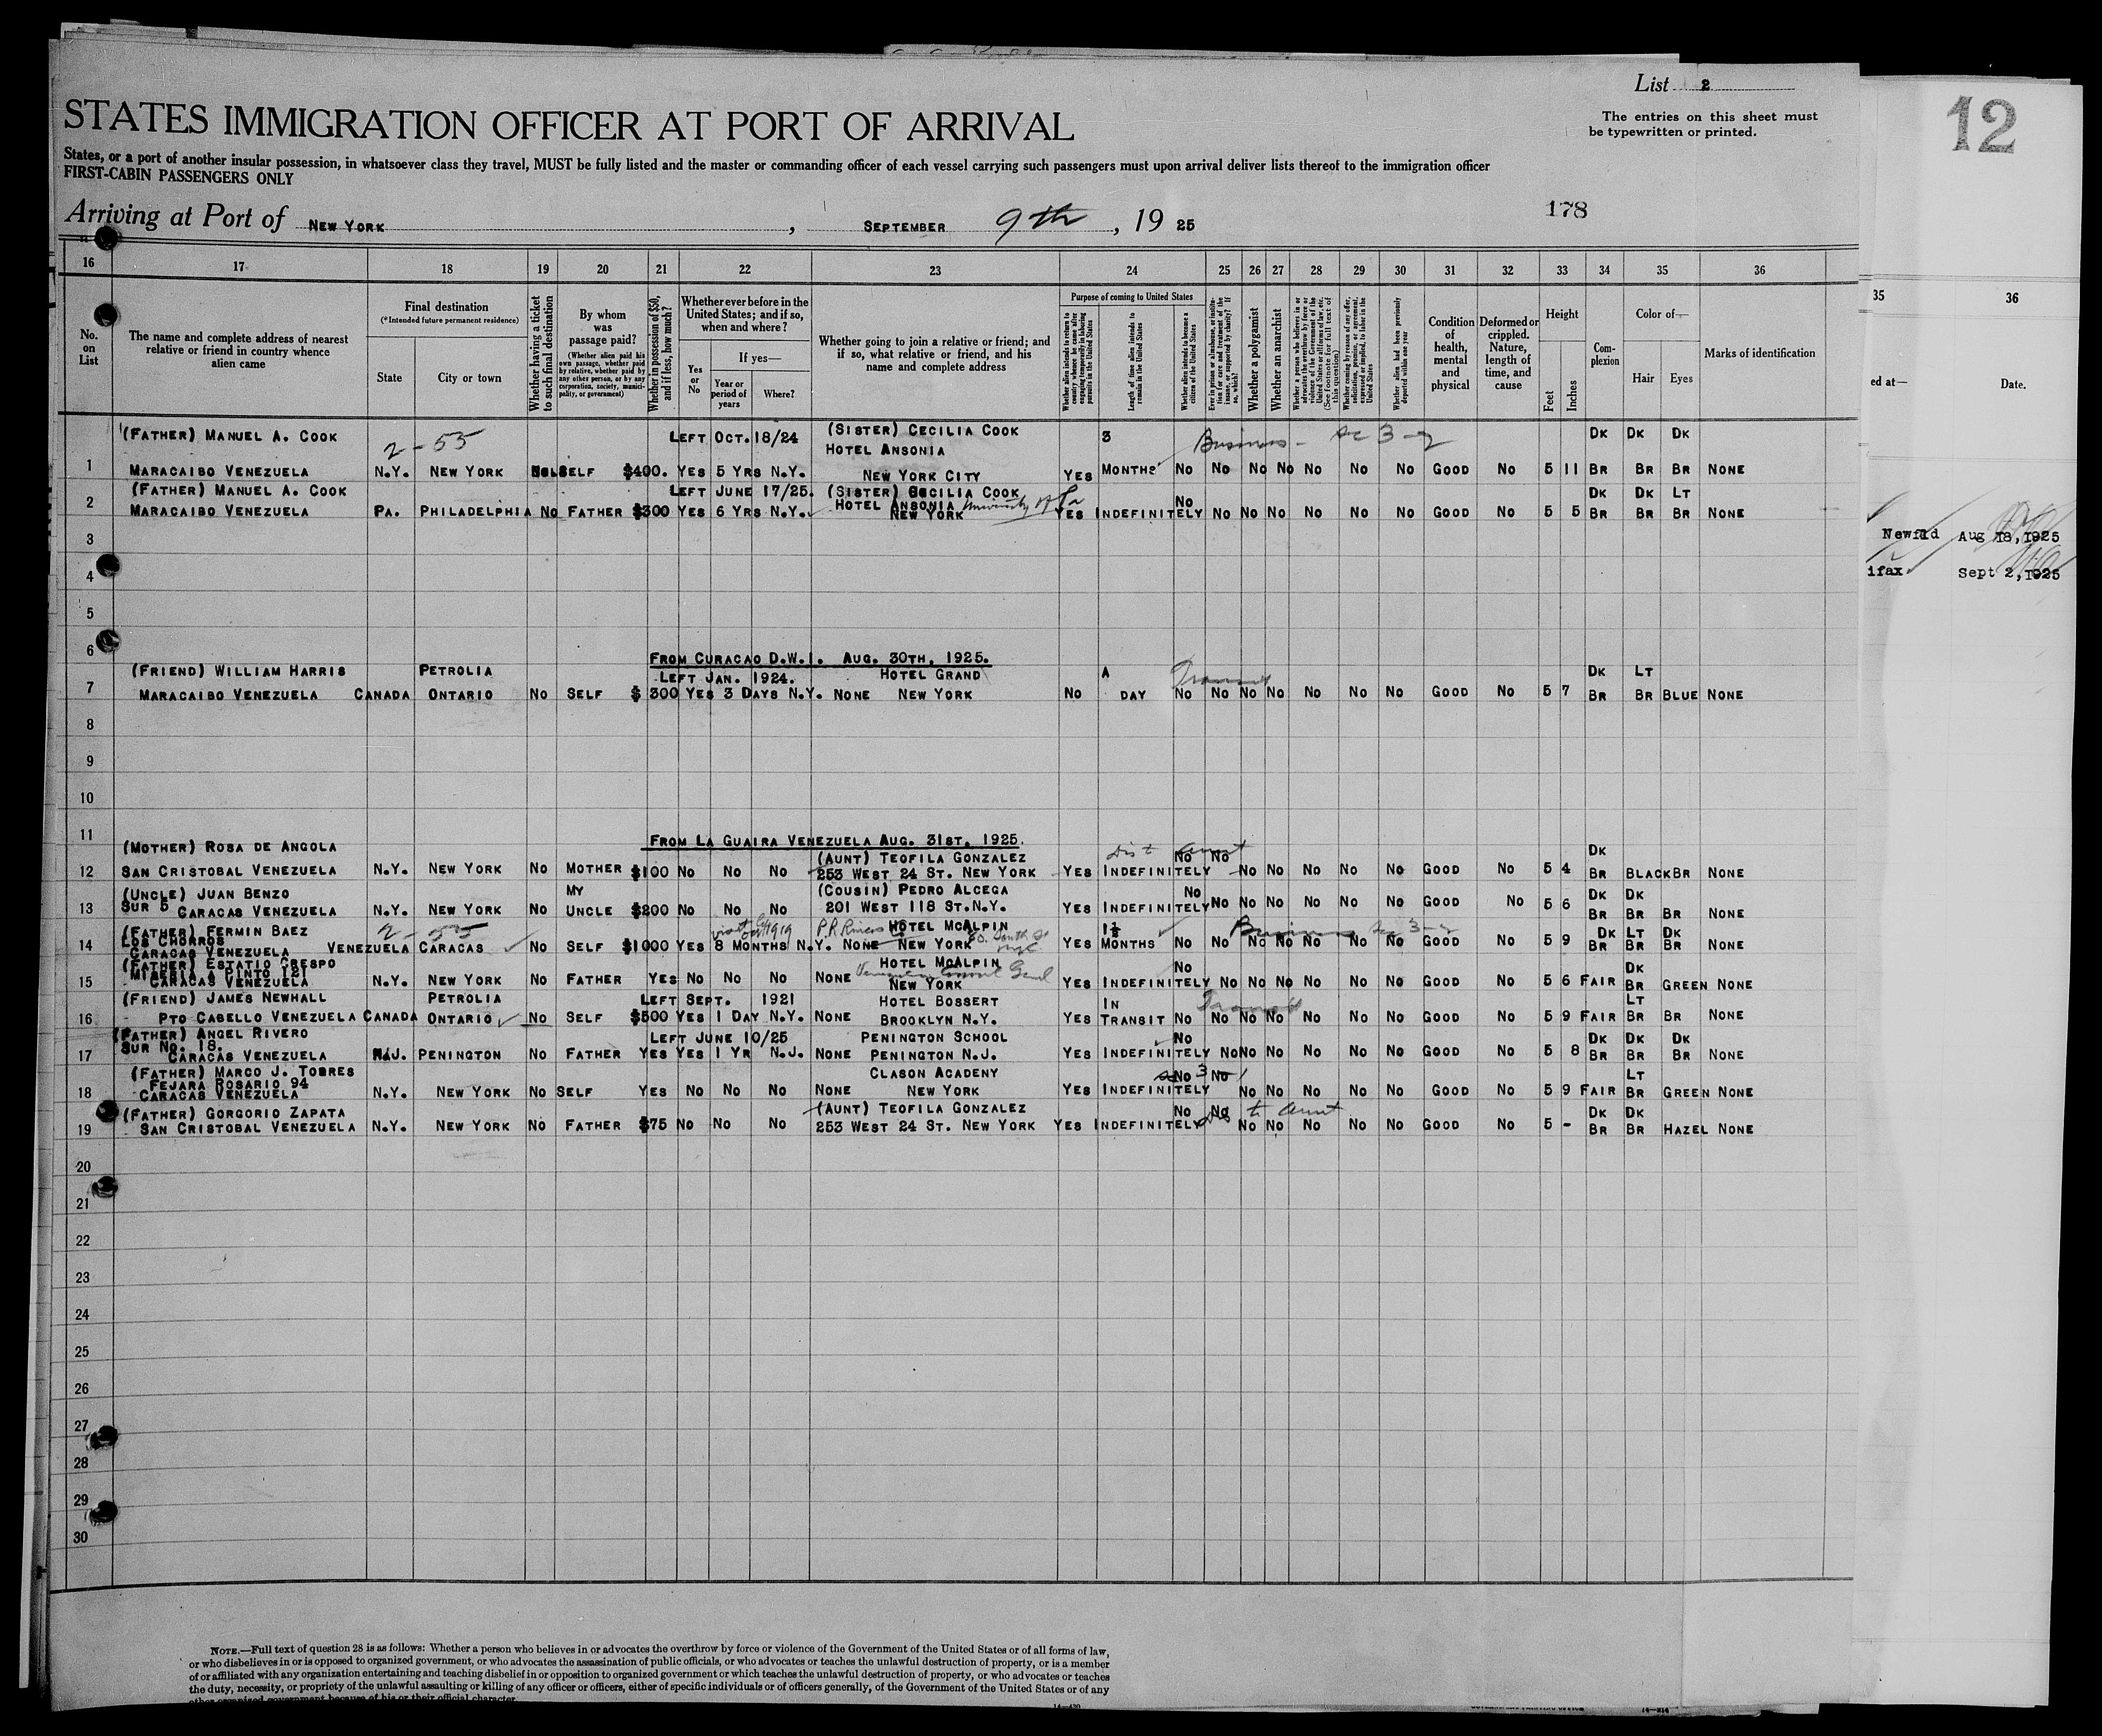 List 2
The entries on this sheet must
be typewritten or printed.
12
STATES IMMIGRATION OFFICER AT PORT OF ARRIVAL
States, or a port of another insular possession, in whatsoever class they travel, MUST be fully listed and the master or commanding officer of each vessel carrying such passengers must upon arrival deliver lists thereof to the immigration officer
FIRST-CABIN PASSENGERS ONLY
178
Arriving at Port of NEW YORK, SEPTEMBER 9th, 19 25
16 17 18 19 20 21 22 23 24 25 26 27 28 29 30 31 32 33 34 35 36
35 36
No. on List
The name and complete address of nearest relative or friend in country whence alien came
Final destination
(*Intended future permanent residence)
State
City or town
Whether having a ticket to such final destination
By whom was passage paid?
(Whether alien paid his own passage, whether paid by relative, whether paid by any other person, or by any corporation, society, municipality, or government)
Whether in possession of $50, and if less, how much?
Whether ever before in the United States; and if so, when and where?
Yes or No
If yes—
Year or period of years
Where?
Whether going to join a relative or friend; and if so, what relative or friend, and his name and complete address
Purpose of coming to United States
Whether alien intends to return to country whence he came after engaging temporarily in laboring pursuits in the United States
Length of time alien intends to remain in the United States
Whether alien intends to become a citizen of the United States
Ever in prison or almshouse, or institution for care and treatment of the insane, or supported by charity? If so, which?
Whether a polygamist
Whether an anarchist
Whether a person who believes in or advocates the overthrow by force or violence of the Government of the United States or all forms of law, etc. (See footnote for full text of this question)
Whether coming by reason of any offer, solicitation, promise, or agreement, expressed or implied, to labor in the United States
Whether alien had been previously deported within one year
Condition of health, mental and physical
Deformed or crippled. Nature, length of time, and cause
Height
Feet
Inches
Complexion
Color of—
Hair
Eyes
Marks of identification
ed at—
Date.
(FATHER) MANUEL A. COOK 2-55 LEFT OCT. 18/24 (SISTER) CECILIA COOK 3 Business - Sec 3-2 DK DK DK
HOTEL ANSONIA
1 MARACAIBO VENEZUELA N.Y. NEW YORK SELF $400. YES 5 YRS N.Y. NEW YORK CITY YES MONTHS NO NO NO NO NO NO NO GOOD NO 5 11 BR BR BR NONE
(FATHER) MANUEL A. COOK LEFT JUNE 17/25. (SISTER) CECILIA COOK NO DK DK LT
HOTEL ANSONIA University of Pa
2 MARACAIBO VENEZUELA PA. PHILADELPHIA NO FATHER $300 YES 6 YRS N.Y. NEW YORK YES INDEFINITELY NO NO NO NO NO NO GOOD NO 5 5 BR BR BR NONE
3
Newfld Aug 18, 1925
4
ifax Sept 2, 1925
5
6 FROM CURACAO D.W.I. AUG. 30TH, 1925.
(FRIEND) WILLIAM HARRIS PETROLIA LEFT JAN. 1924. HOTEL GRAND A Transit DK LT
7 MARACAIBO VENEZUELA CANADA ONTARIO NO SELF $300 YES 3 DAYS N.Y. NONE NEW YORK NO DAY NO NO NO NO NO NO NO GOOD NO 5 7 BR BR BLUE NONE
8
9
10
11 FROM LA GUAIRA VENEZUELA AUG. 31ST, 1925.
(MOTHER) ROSA DE ANGOLA (AUNT) TEOFILA GONZALEZ NO NO DK
12 SAN CRISTOBAL VENEZUELA N.Y. NEW YORK NO MOTHER $100 NO NO NO 253 WEST 24 ST. NEW YORK YES INDEFINITELY NO NO NO NO NO GOOD NO 5 4 BR BLACK BR NONE
(UNCLE) JUAN BENZO MY (COUSIN) PEDRO ALCEGA NO DK DK
13 SUR 5 CARACAS VENEZUELA N.Y. NEW YORK NO UNCLE $200 NO NO NO 201 WEST 118 ST. N.Y. YES INDEFINITELY NO NO NO NO NO NO GOOD NO 5 6 BR BR BR NONE
(FATHER) FERMIN BAEZ 2-55 HOTEL MCALPIN 1½ Business Sec 3-2 DK LT DK
LOS CHORROS
14 CARACAS VENEZUELA VENEZUELA CARACAS NO SELF $1000 YES 8 MONTHS N.Y. NONE NEW YORK YES MONTHS NO NO NO NO NO NO NO GOOD NO 5 9 BR BR BR NONE
(FATHER) ESTATIO CRESPO HOTEL MCALPIN NO DK
MISERIA A PINTO 121 Venezuelan Consul Genl
15 CARACAS VENEZUELA N.Y. NEW YORK NO FATHER YES NO NO NO NONE NEW YORK YES INDEFINITELY NO NO NO NO NO NO GOOD NO 5 6 FAIR BR GREEN NONE
(FRIEND) JAMES NEWHALL PETROLIA LEFT SEPT. 1921 HOTEL BOSSERT IN Transit LT
16 PTO CABELLO VENEZUELA CANADA ONTARIO NO SELF $500 YES 1 DAY N.Y. NONE BROOKLYN N.Y. YES TRANSIT NO NO NO NO NO NO NO GOOD NO 5 9 FAIR BR BR NONE
(FATHER) ANGEL RIVERO LEFT JUNE 10/25 PENINGTON SCHOOL NO DK DK DK
SUR NO. 18.
17 CARACAS VENEZUELA N.J. PENINGTON NO FATHER YES YES 1 YR N.J. NONE PENINGTON N.J. YES INDEFINITELY NO NO NO NO NO NO GOOD NO 5 8 BR BR BR NONE
(FATHER) MARCO J. TORRES CLASON ACADENY NO NO LT
FEJARA ROSARIO 94
18 CARACAS VENEZUELA N.Y. NEW YORK NO SELF YES NO NO NO NONE NEW YORK YES INDEFINITELY NO NO NO NO NO GOOD NO 5 9 FAIR BR GREEN NONE
(FATHER) GORGORIO ZAPATA (AUNT) TEOFILA GONZALEZ NO NO to Aunt DK DK
19 SAN CRISTOBAL VENEZUELA N.Y. NEW YORK NO FATHER $75 NO NO NO 253 WEST 24 ST. NEW YORK YES INDEFINITELY NO NO NO NO NO GOOD NO 5 - BR BR HAZEL NONE
20
21
22
23
24
25
26
27
28
29
30
NOTE.—Full text of question 28 is as follows: Whether a person who believes in or advocates the overthrow by force or violence of the Government of the United States or of all forms of law,
or who disbelieves in or is opposed to organized government, or who advocates the assassination of public officials, or who advocates or teaches the unlawful destruction of property, or is a member
of or affiliated with any organization entertaining and teaching disbelief in or opposition to organized government or which teaches the unlawful destruction of property, or who advocates or teaches
the duty, necessity, or propriety of the unlawful assaulting or killing of any officer or officers, either of specific individuals or of officers generally, of the Government of the United States or of any
other organized government because of his or their official character.